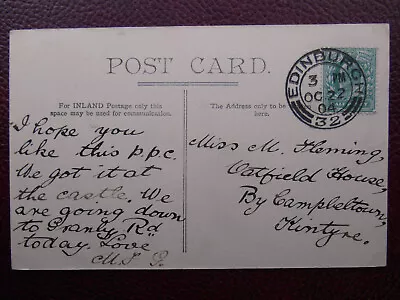 POST CARD.
For INLAND Postage only this
space may be used for communication.
The Address only to be
here.
EDINBURGH
3 PM
OC 22
04
32
I hope you
like this p.p.c.
We got it at
the castle. We
are going down
to Granby Rd
today. Love
Miss M. Fleming,
Oatfield House,
By Campbeltown,
Kintyre.